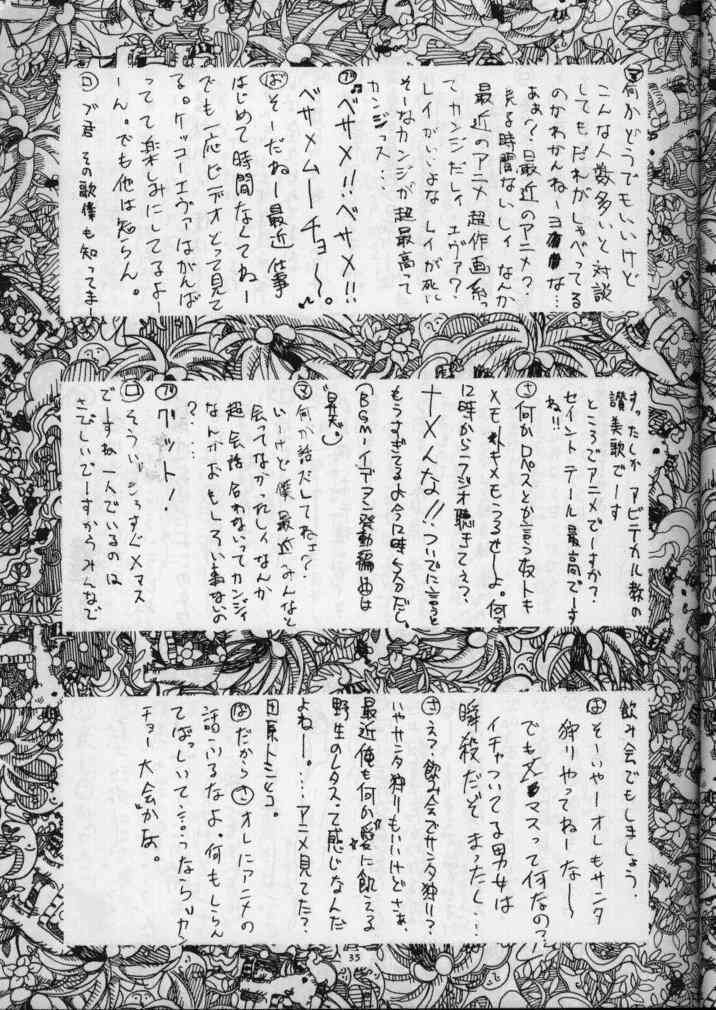 マ何かどうでもいいけど
こんな人数多いと対談
してもだれがしゃべってる
のかわかんねーヨな…
あぁ?最近のアニメ?
見る時間ないしィなんか
最近のアニメ超作画系っ
てカンジだしィエヴァ?
レイがいいよなレイが死に
そーなカンジが超最高て
カンジっス…
ブ♫ベサメ!!ベサメ!!
ベサメムーチョ〜。♪
ばそーだねー最近仕事
はじめて時間なくてねー
でも一応ビデオとって見て
る。ケッコーエヴァはがんば
ってて楽しみにしてるよー
ーん。でも他は知らん。
ロブ君その歌僕も知ってまー
すったしかアビテカル教の
讃美歌でーす
ところでアニメでーすか?
セイントテール最高でーす
ね!!
さ何かロペスとか言う奴トキ
メモトキメモうるせーよ。何?
12時からラジオ聴きてぇ?
ナメんな!!ついでに言うと
もうすぎてるよ今12時5分だし。
(BGM-イデオン発動編曲は
昇天)
マ何か話だしてねェ?
いーけど僕最近みんなと
会ってなかったしィなんか
超会話合わないってカンジィ
なんかおもしろい事ないの
?…
ブグット!
ロそういえばもうすぐXマス
でーすね一人でいるのは
さびしいでーすからみんなで
飲み会でもしましょう。
ばそーいやーオレもサンタ
狩りやってねーなー〜
でもXマスって何なの?
イチャついてる男女は
瞬殺だぞまったく…
さえ?飲み会でサンタ狩り?
いやサンタ狩りもいいけどさぁ、
最近俺も何か愛に飢える
野生のレタスって感じなんだ
よねー。…アニメ見てた?
田原トシひこ。
ばだからさオレにアニメの
話ふるなよ。何もしらん
チョー大会かあ。
35